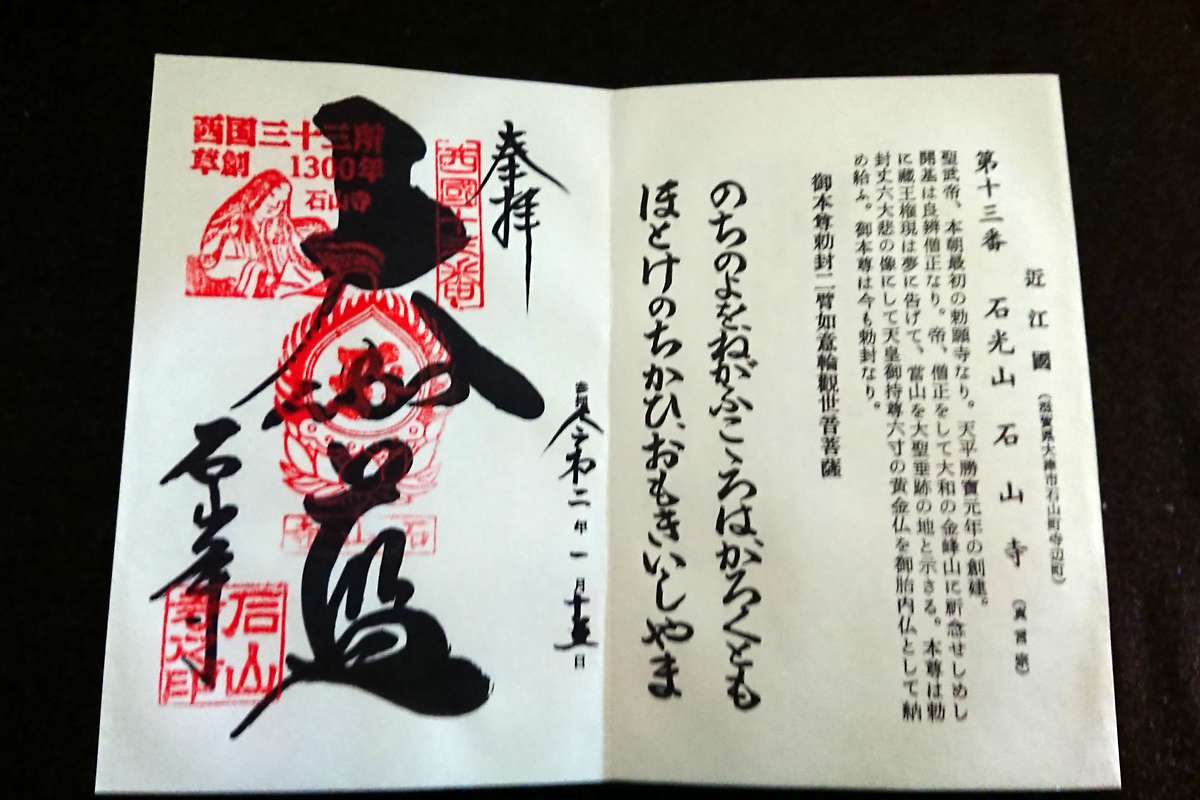 近江國（滋賀県大津市石山町寺辺町）
第十三番　石光山　石山寺（真言宗）
聖武帝、本朝最初の勅願寺なり。天平勝寶元年の創建。
開基は良辨僧正なり。帝、僧正をして大和の金峰山に祈念せしめし
に蔵王権現は夢に告げて、當山を大聖垂跡の地と示さる。本尊は勅
封丈六大悲の像にして天皇御持尊六寸の黄金仏を御胎内仏として納
め給ふ。御本尊は今も勅封なり。
御本尊勅封二臂如意輪観世音菩薩
のちのよをねがふこゝろはかろくとも
ほとけのちかひ、おもきいしやま
奉拝
西國十三番
西国三十三所
草創　1300年
石山寺
参拝　令和二年一月十五日
大悲殿
石山寺
石山寺
石山寺之印